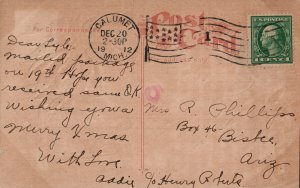 Post Card
For Correspondence
CALUMET
DEC 20
2-30P
1912
MICH.
1
Dear Lyle.
Mailed package
on 19th Hope you
received same O.K
Wishing you a
Merry Xmas
With Love.
Addie
Mrs R. Phillips
Box 46-
Bisbee,
Ariz
c/o Henry